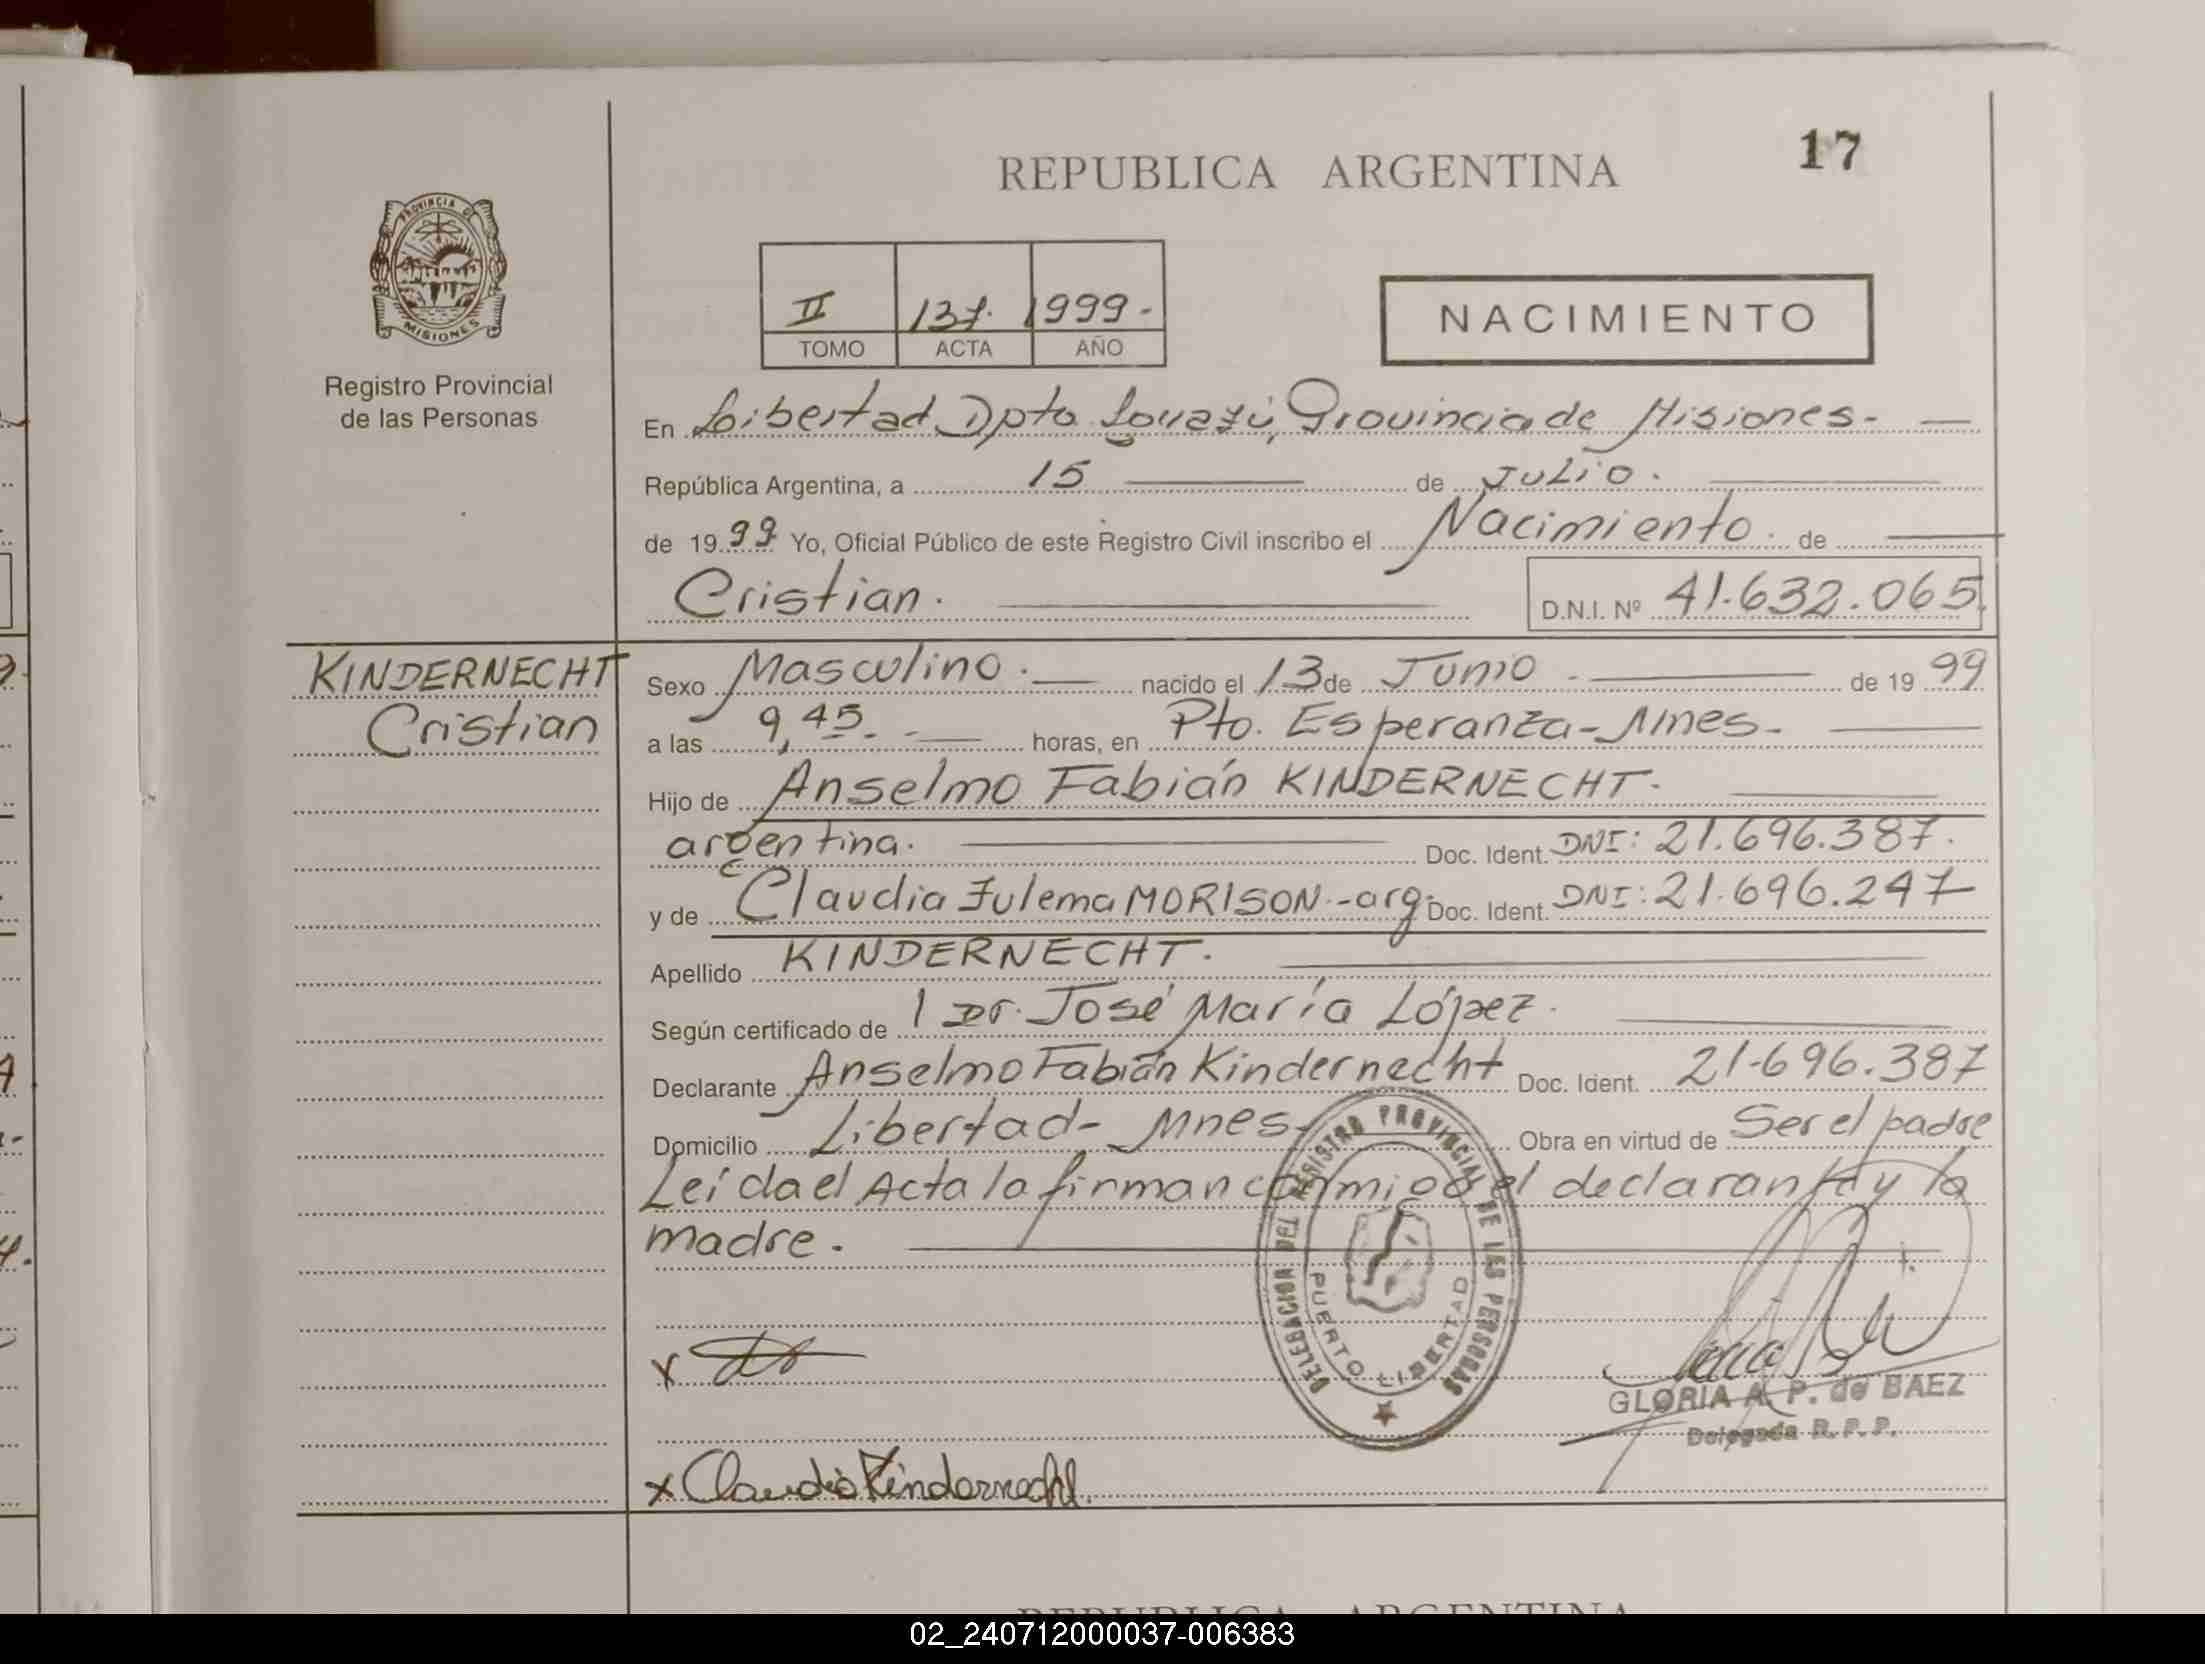 17
REPUBLICA ARGENTINA
PROVINCIA DE
MISIONES
Registro Provincial
de las Personas
II 137. 1999.-
TOMO ACTA AÑO
NACIMIENTO
En Libertad Dpto Iguazú, Provincia de Misiones.-
República Argentina, a 15 de Julio.
de 19 99 Yo, Oficial Público de este Registro Civil inscribo el Nacimiento. de
Cristian. D.N.I. Nº 41.632.065.
KINDERNECHT
Cristian
Sexo Masculino. nacido el 13 de Junio. de 19 99
a las 9,45. horas, en Pto. Esperanza-Mnes.
Hijo de Anselmo Fabián KINDERNECHT.
argentina. Doc. Ident. DNI: 21.696.387.
y de Claudia Zulema MORISON.-arg. Doc. Ident. DNI: 21.696.247
Apellido KINDERNECHT.
Según certificado de 1 Dr. José María López.
Declarante Anselmo Fabián Kindernecht Doc. Ident. 21.696.387
Domicilio Libertad- Mnes. Obra en virtud de Ser el padre
Leída el Acta la firman conmigo el declarante y la
madre.
DELEGACION DEL REGISTRO PROVINCIAL DE LAS PERSONAS
PUERTO LIBERTAD
x
GLORIA A. P. de BAEZ
Delegada R.P.P.
x Claudia Kindernecht.
REPUBLICA ARGENTINA
02_240712000037-006383